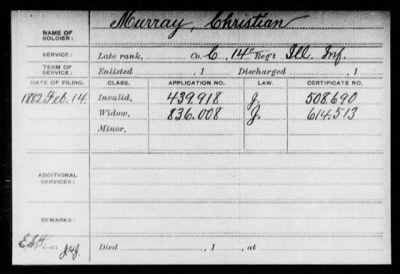 NAME OF SOLDIER: Murray, Christian
SERVICE: Late rank, Co. C, 14th Reg't Ill. Inf.
TERM OF SERVICE: Enlisted , 1 Discharged , 1
DATE OF FILING. CLASS. APPLICATION NO. LAW. CERTIFICATE NO.
1882 Feb. 14. Invalid, 439.918 J. 508.690
Widow, 836.008 J. 614.513
Minor,
ADDITIONAL SERVICES:
REMARKS:
Died , 1 , at